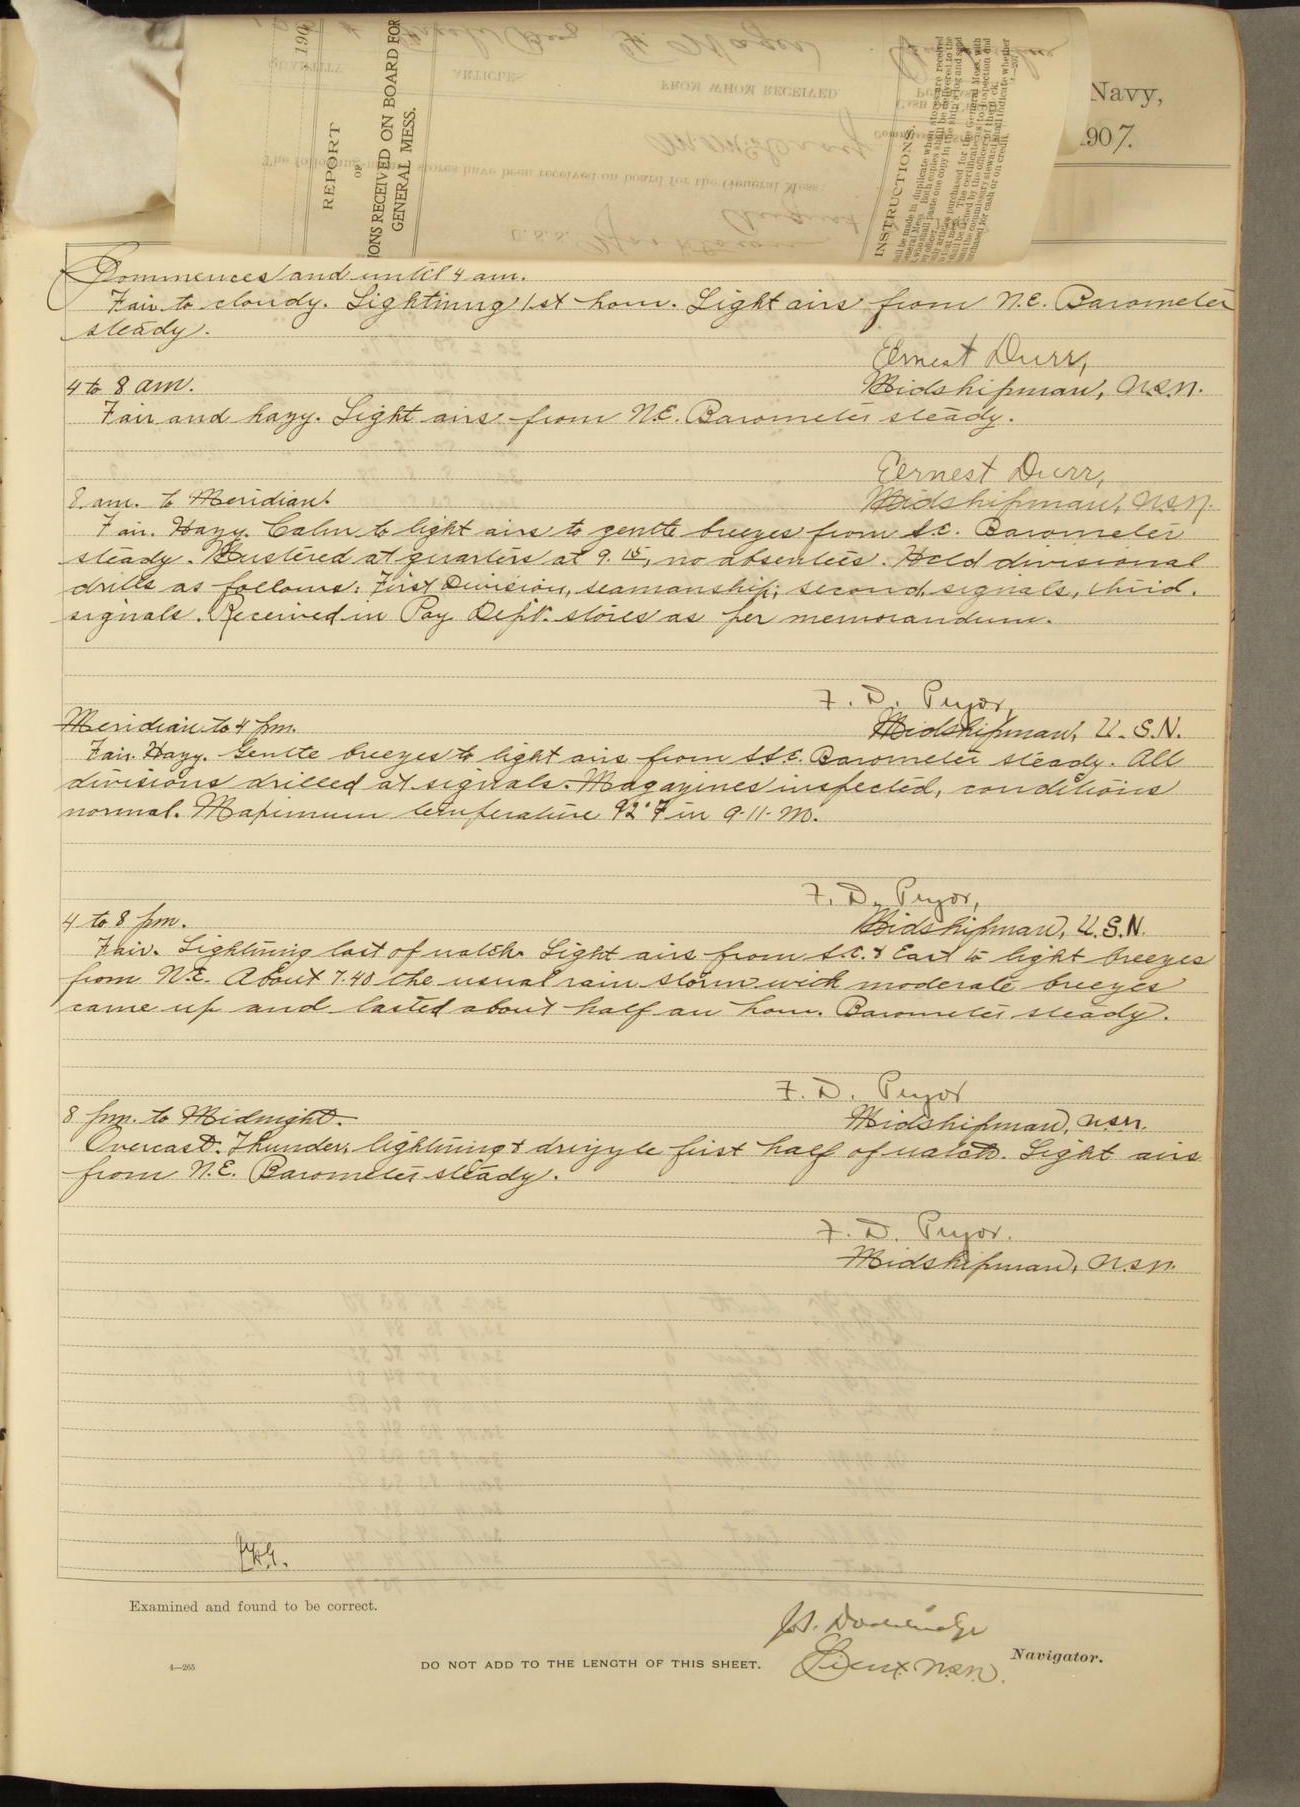 190
REPORT
OF
IONS RECEIVED ON BOARD FOR
GENERAL MESS.
QUANTITY
ARTICLES
FROM WHOM RECEIVED
The following stores have been received on board for the General Mess
August
U.S.S.
INSTRUCTIONS.
Navy,
1907.
Commences and until 4 am.
Fair to cloudy. Lightning 1st hour. Light airs from N.E. Barometer
steady.
Ernest Durr,
Midshipman, U.S.N.
4 to 8 am.
Fair and hazy. Light airs from N.E. Barometer steady.
Ernest Durr,
Midshipman, U.S.N.
8 am. to Meridian.
Fair. Hazy. Calm to light airs to gentle breezes from S.E. Barometer
steady. Mustered at quarters at 9.15, no absentees. Held divisional
drills as follows: First Division, seamanship; second, signals, third,
signals. Received in Pay Dept. stores as per memorandum.
F. D. Pryor,
Midshipman, U.S.N.
Meridian to 4 pm.
Fair. Hazy. Gentle breezes to light airs from SSE. Barometer steady. All
divisions drilled at signals. Magazines inspected, conditions
normal. Maximum temperature 92° F in 9-11-M.
F. D. Pryor,
Midshipman, U.S.N.
4 to 8 pm.
Fair. Lightning last of watch. Light airs from S.E. & East to light breezes
from N.E. About 7.40 the usual rain storm with moderate breezes
came up and lasted about half an hour. Barometer steady.
F. D. Pryor
Midshipman, U.S.N.
8 pm. to Midnight.
Overcast. Thunder, lightning & drizzle first half of watch. Light airs
from N.E. Barometer steady.
F. D. Pryor.
Midshipman, U.S.N.
Examined and found to be correct.
Lieut. U.S.N.
Navigator.
4—265
DO NOT ADD TO THE LENGTH OF THIS SHEET.